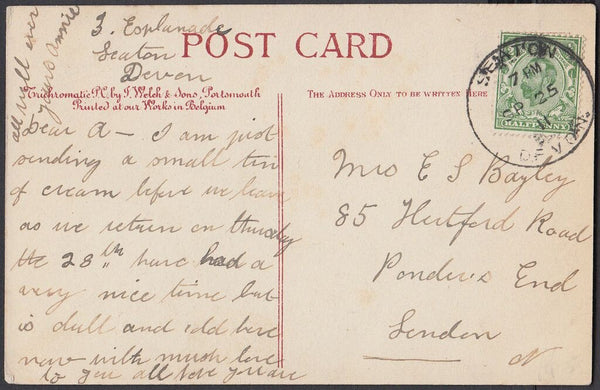 3. Esplanade
Seaton
Devon
POST CARD
Trichromatic P.C. by J. Welch & Sons, Portsmouth
Printed at our Works in Belgium
THE ADDRESS ONLY TO BE WRITTEN HERE
Dear A— I am just
sending a small tin
of cream before we leave
as we return on thursday
the 28th have had a
very nice time but
is dull and cold here
now with much love
to you all love
all well ever
yours Annie
Mrs E S Bayley
85 Hertford Road
Ponders End
London
N
SEATON
7 PM
25
DEVON.
HALFPENNY